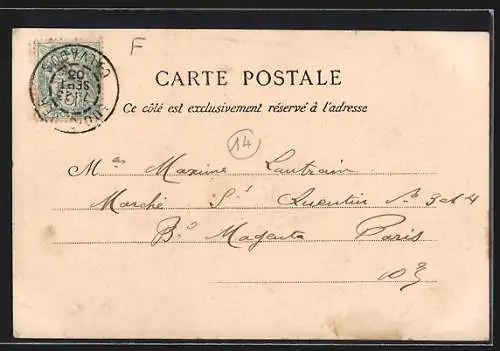 F
CARTE POSTALE
Ce côté est exclusivement réservé à l'adresse
14
Maxime Lautrain
Marché St Quentin No 3 et 4
Bd Magenta Paris
10e